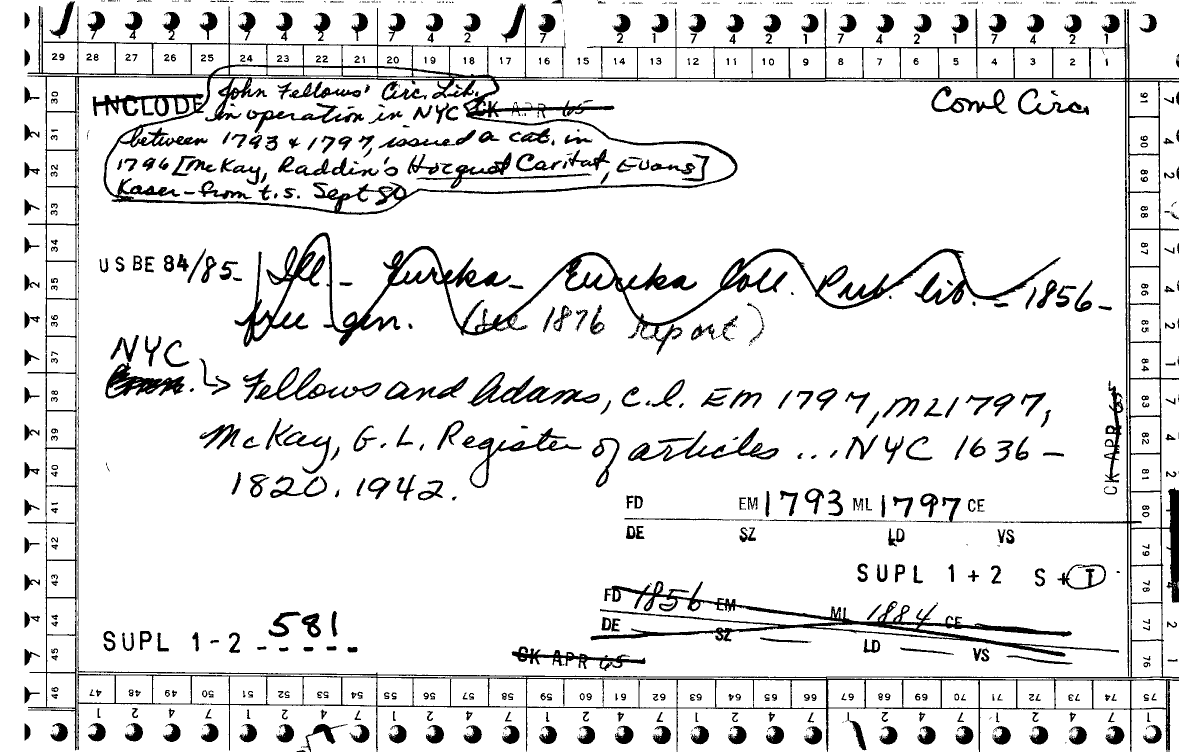 7 4 2 1 7 4 2 1 7 4 2 1 7 2 1 7 4 2 1 7 4 2 1 7 4 2 1
29 28 27 26 25 24 23 22 21 20 19 18 17 16 15 14 13 12 11 10 9 8 7 6 5 4 3 2 1
INCLUDE John Fellows' Circ. Lib. Coml Circ.
in operation in NYC CK APR 65
between 1793 & 1797, issued a cat. in
1796 [McKay, Raddin's Hocquet Caritat, Evans]
Kaser - from t.s. Sept 80
USBE 84/85 Ill. - Eureka - Eureka Coll. Pub. lib. - 1856 -
free - gen. (see 1876 report)
NYC
Fellows and Adams, c.l. EM 1797, ML 1797,
McKay, G. L. Register of articles ... NYC 1636 -
1820. 1942.
CK APR 65
FD EM 1793 ML 1797 CE
DE SZ LD VS
SUPL 1 + 2 S + T
FD 1856 EM ML 1884 CE
DE SZ LD VS
SUPL 1 - 2 581
CK APR 65
30 31 32 33 34 35 36 37 38 39 40 41 42 43 44 45 46
91 90 89 88 87 86 85 84 83 82 81 80 79 78 77 76
47 48 49 50 51 52 53 54 55 56 57 58 59 60 61 62 63 64 65 66 67 68 69 70 71 72 73 74 75